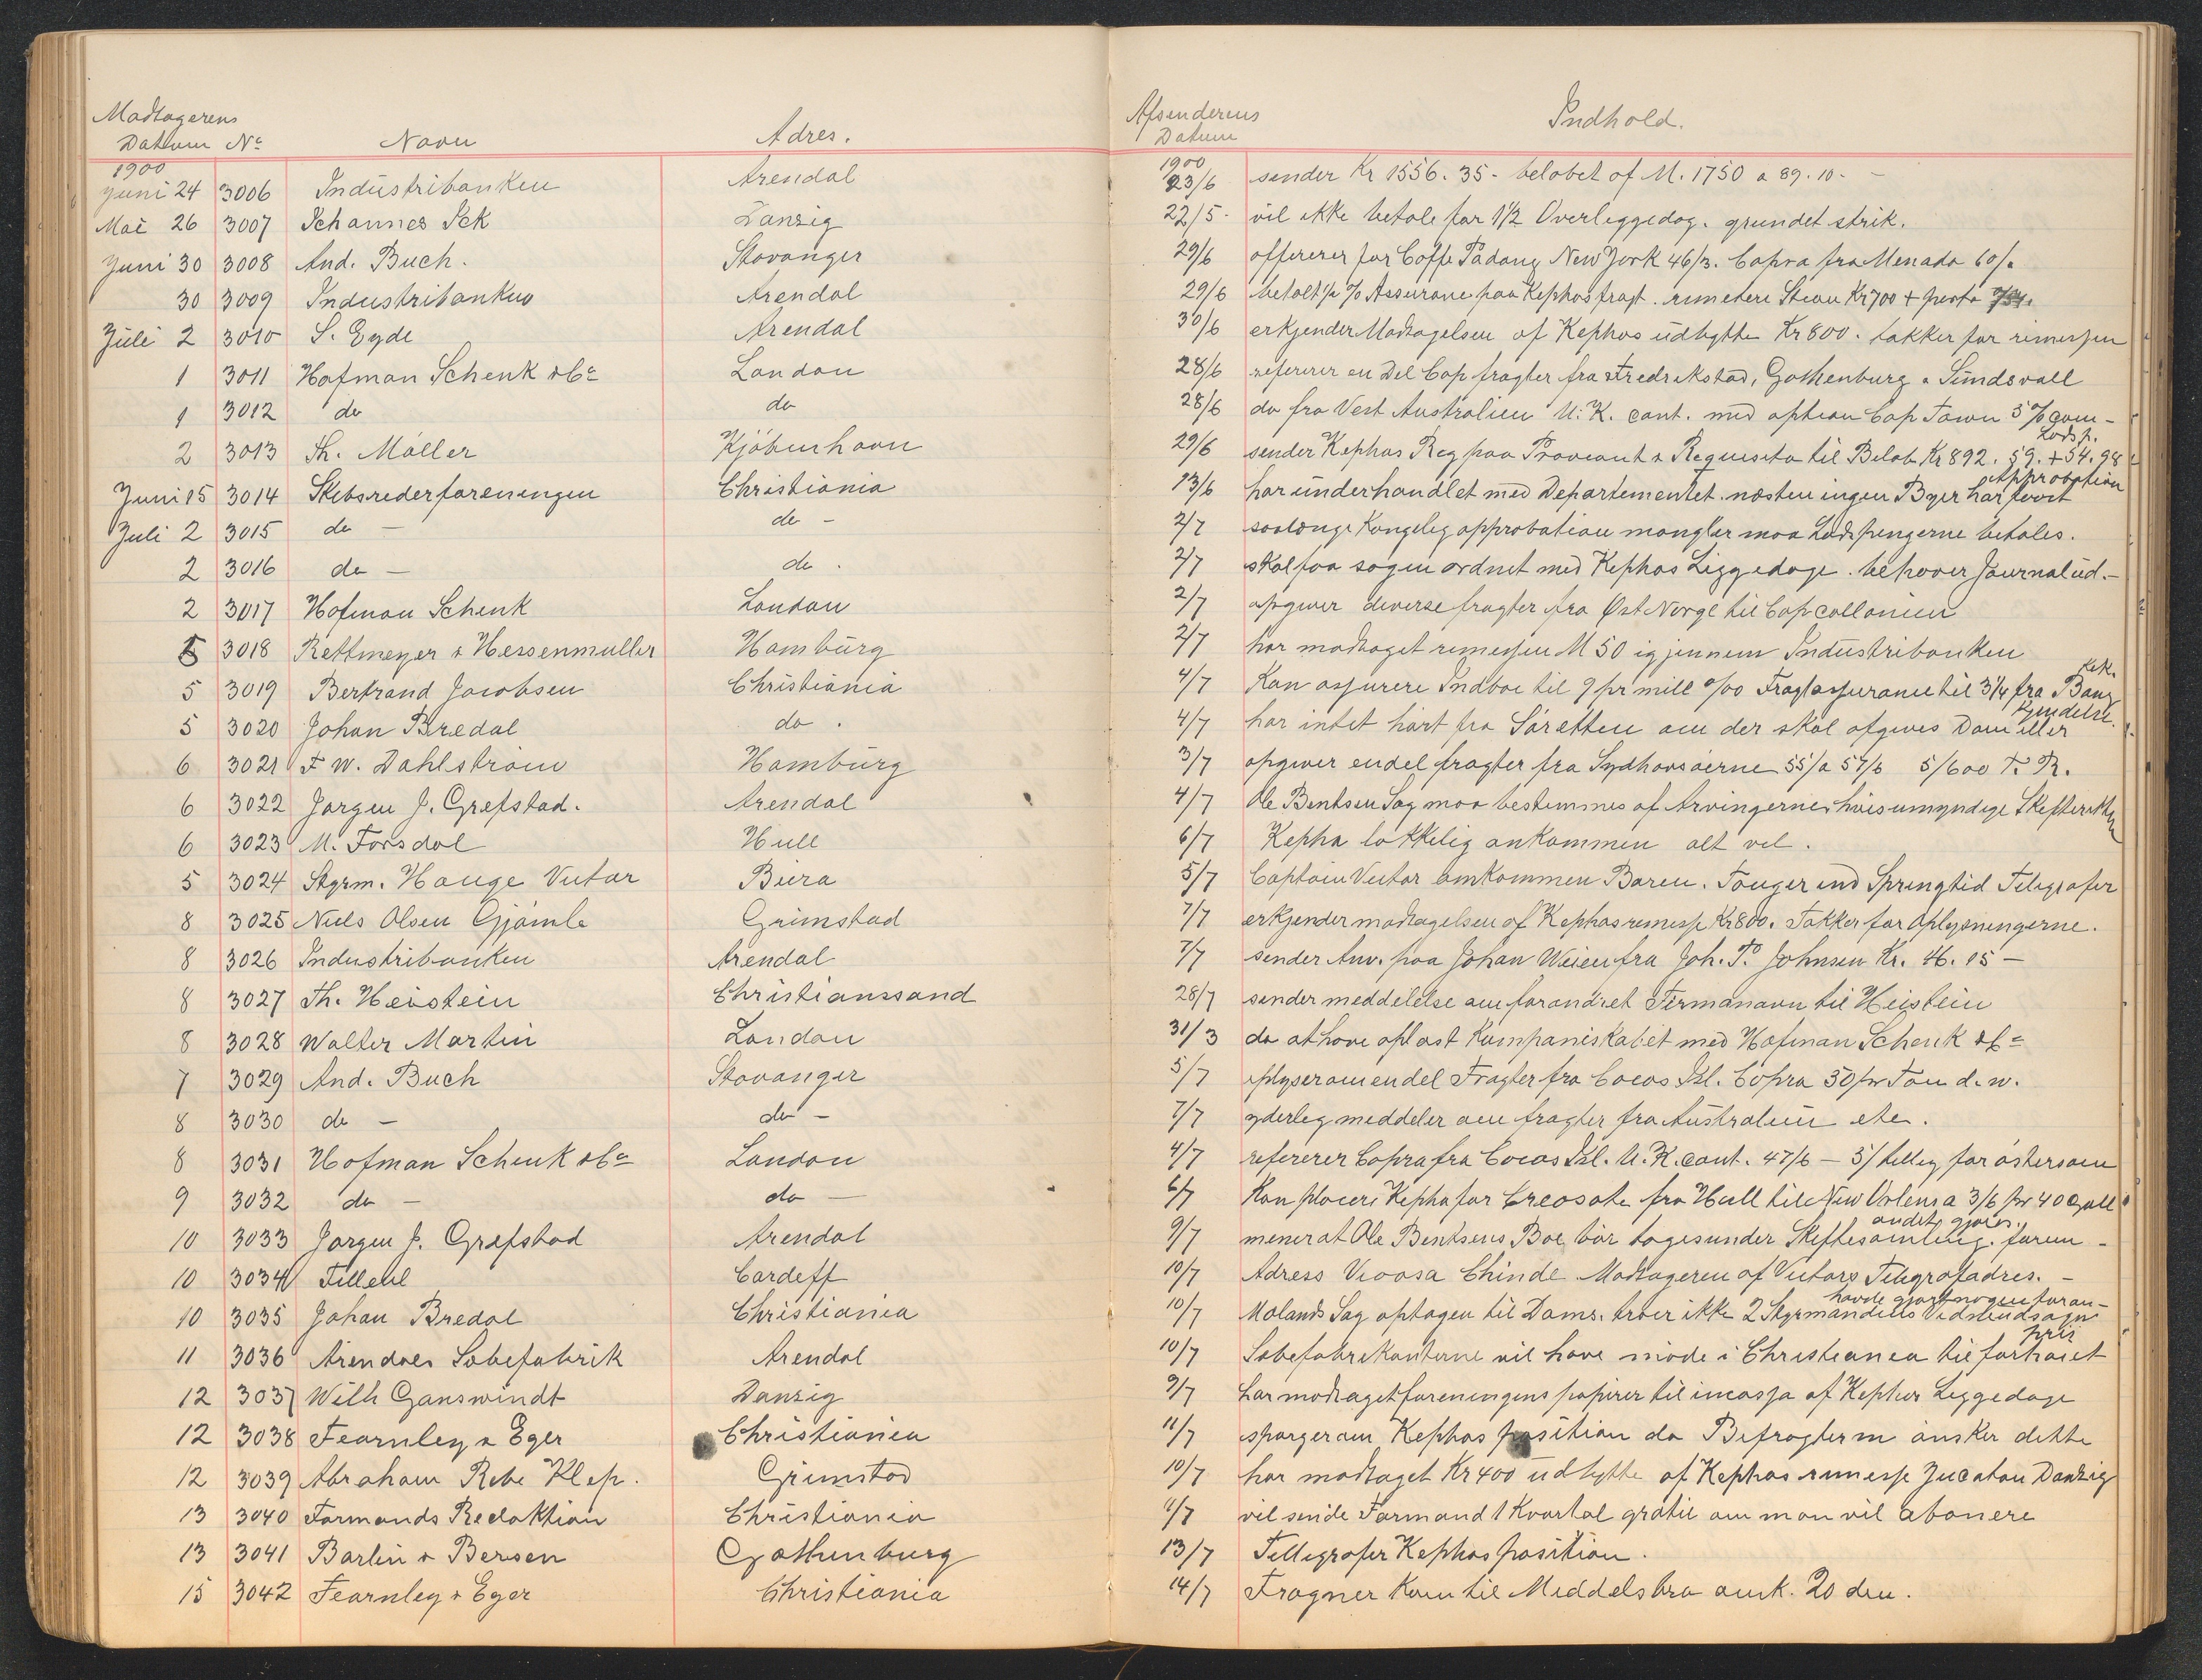 Modtagerens Afsenderens
Datum No Navn Adres. Datum Indhold.
1900 1900
Juni 24 3006 Industribanken Arendal 23/6 sender Kr 1556. 35 - belobet of M. 1750 a 89. 10 -
Mai 26 3007 Johannes Ick Danzig 22/5 - vil ikke betale for 1 1/2 Overliggedag. grundet strik.
Juni 30 3008 And. Buch. Stavanger 29/6 offererer for Coffe Padang New York 46/3. Copra fra Menado 60/.
30 3009 Industribanken Arendal 29/6 betalt % Assurance paa Kephas fragt. Kr 700 + porto
Juli 2 3010 S. Eyde Arendal 30/6 erkjender Modtagelsen af Kephas udbytte Kr 800. takker for rimessen
1 3011 Hofman Schenk & Co London 28/6 refererer en Del Cap fragter fra Fredrikstad, Gothenburg & Sundsvall
1 3012 do do 28/6 do fra Vest Australien U. K. cont. med option Cap Town 5 % com -
2 3013 Th. Möller Kjöbenhavn 29/6 sender Kephas Reg paa Proviant & Requisita til Belob Kr 892. 59. + 54. 98 Lods p.
Juni 15 3014 Skibsrederforeningen Christiania 13/6 har underhandlet med Departementet. næsten ingen Byer har faaet Approbation
Juli 2 3015 do - do - 2/7 saalænge Kongelig approbation mangler maa Lodspengerne betales.
2 3016 do - do . 2/7 skal faa sagen ordnet med Kephas Liggedage. behover Journalud. -
2 3017 Hofman Schenk London 2/7 opgiver diverse fragter fra Øst Norge til Cap collonien
5 3018 Rettmeyer & Hessenmuller Hamburg 2/7 har modtaget rimessen M 50 igjennem Industribanken
5 3019 Bertrand Jacobsen Christiania 4/7 Kan assurere Indboe til 9 pr mill o/oo Fragtassurance til 3 1/4 fra Bang kok.
5 3020 Johan Bredal do . 4/7 har intet hört fra Söretten om der skal afgives Dom eller Kjendelse.
6 3021 F W. Dahlström Hamburg 3/7 opgiver endel fragter fra Sydhavsöerne 55/ a 57/6 5/600 T. R.
6 3022 Jorgen J. Grefstad. Arendal 4/7 Ole Bentsen Sag maa bestemmes af Arvingerne, hvis umyndige Skifteretten
6 3023 M. Forsdal Hull 6/7 Kepha lokkelig ankommen alt vel.
5 3024 Styrm. Hauge Victor Biera 5/7 Captain Victor omkommen Baren. Springtid Telegrafer
8 3025 Niels Olsen Gjömle Grimstad 7/7 erkjender modtagelsen af Kephas rimesse Kr 800. Takker for Oplysningerne.
8 3026 Industribanken Arendal 7/7 sender Anv. paa Johan Weien fra Joh. T. Johnsen Kr. 46. 15 -
8 3027 Th. Heistein Christianssand 28/7 sender meddelelse om forandret Firmanavn til Heistein
8 3028 Walter Martin London 31/3 do at have oplöst Kompaniskabet med Hofman Schenk & Co
7 3029 And. Buch Stavanger 5/7 oplyser om endel Fragter fra Cocos Isl. Copra 50/ pr Ton d. w.
8 3030 do - do - 7/7 yderleg meddeler om fragter fra Australien etc.
8 3031 Hofman Schenk & Co London 4/7 refererer Copra fra Cocos Isl. U. K. cont. 47/6 - 5/ tilleg for östersoen
9 3032 do - do - 6/7 Kan placere Kepha for Creosote fra Hull til New Orleans a 3/6 pr 40 Gall
10 3033 Jorgen J. Grefstad Arendal 9/7 mener at Ole Bentsens Boe bör tages under Skiftesamling. forin - andet gjöres.
10 3034 Tillehl Cardiff 10/7 Adress Vivosa Chinde Modtageren af Victors Telegrafadres. -
10 3035 Johan Bredal Christiania 10/7 Molands Sag optagen til Doms. troer ikke 2 Styrmandens Vidneudsagn havde gjort nogen foran -
11 3036 Arendals Sobefabrik Arendal 10/7 Sobefabrikanterne vil have möde i Christiania til forhöiet pris
12 3037 Wilh Ganswindt Danzig 9/7 har modtaget foreningens papirer til incassa af Kephas Liggedage
12 3038 Fearnley & Eger Christiania 11/7 sporger om Kephas position da Befragterne önsker dette
12 3039 Abraham Rebe Klep. Grimstad 10/7 har modtaget Kr 400 udbytte af Kephas rimesse Jucatan Danzig
13 3040 Farmands Redaktion Christiania 11/7 vil sende Farmand 1 Kvartal gratis om man vil abonere
13 3041 Barlin & Bersen Gothenburg 13/7 Telegrafer Kephas position.
15 3042 Fearnley & Eger Christiania 14/7 Frogner Kom til Middelsbro ank. 20 den.